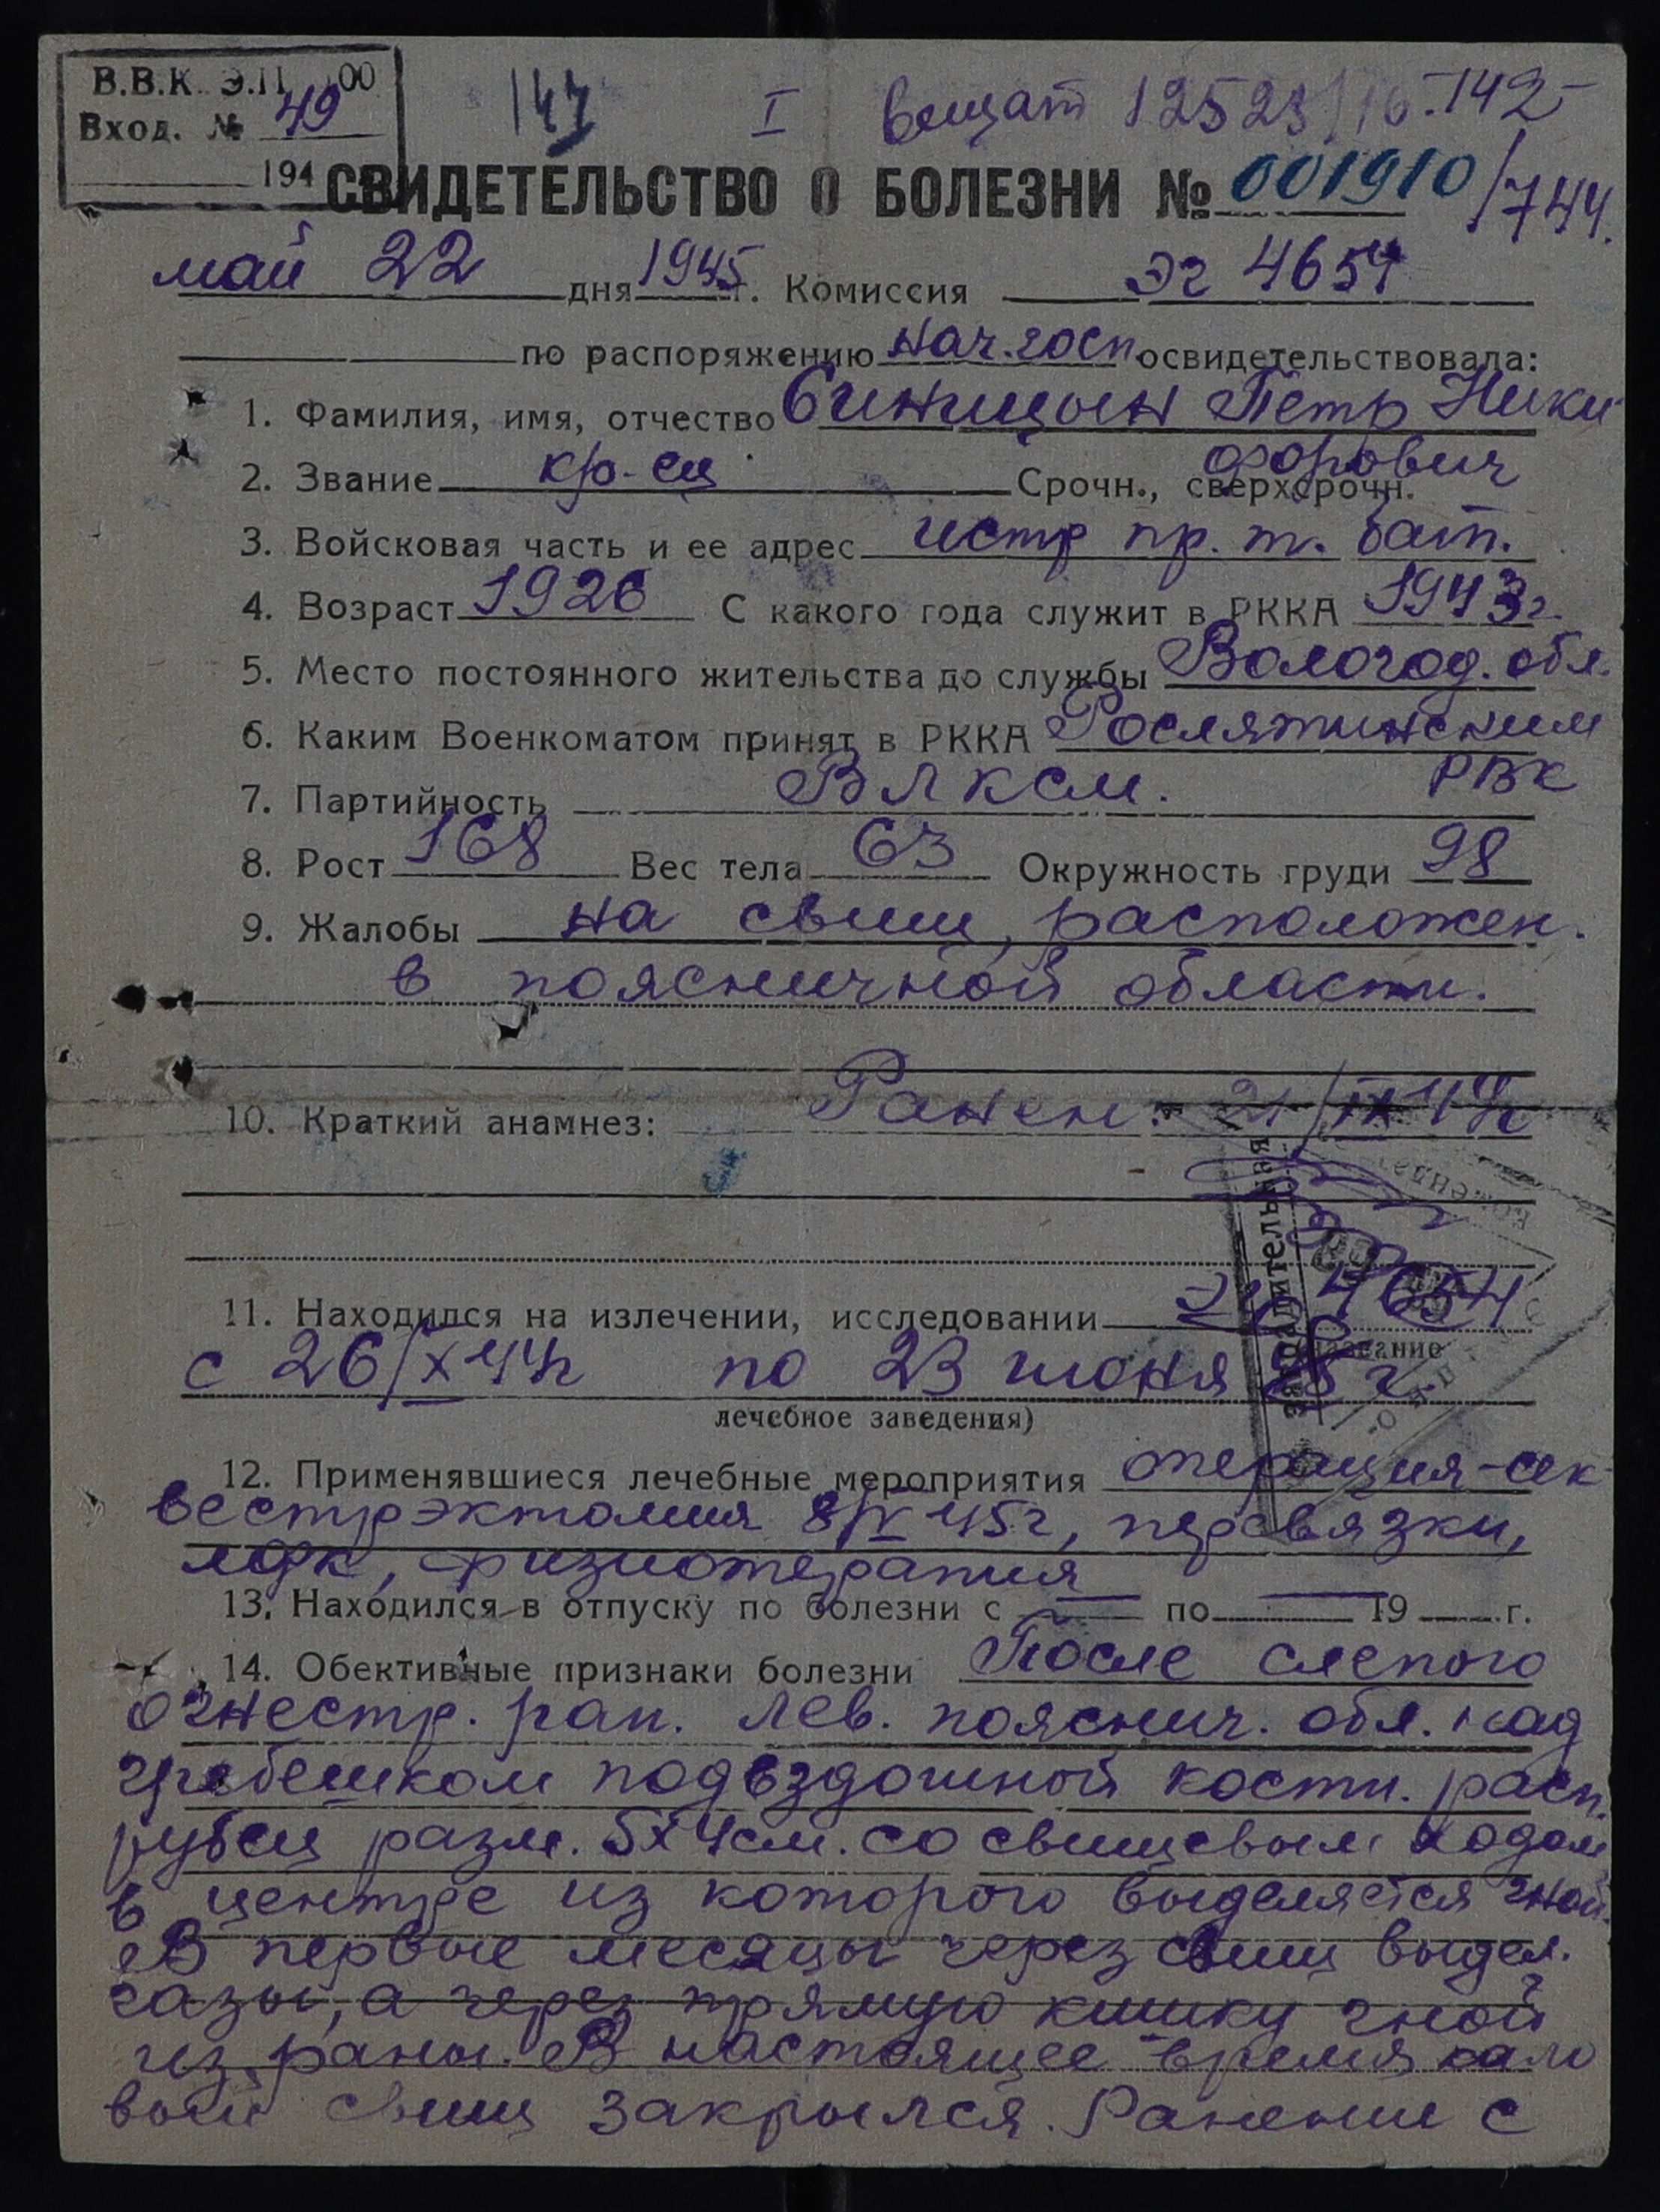 В.В.К. Э.П. 00
Вход. № 49
194
147 I 12523
СВИДЕТЕЛЬСТВО О БОЛЕЗНИ № 001910/744.
май 22 дня 1945 г. Комиссия Эг 4654
по распоряжению нач. госп. освидетельствовала:
1. Фамилия, имя, отчество Синицын Петр Ники
форович
2. Звание кр-ец Срочн., сверхсрочн.
3. Войсковая часть и ее адрес истр пр. т. бат.
4. Возраст 1926 С какого года служит в РККА 1943г.
5. Место постоянного жительства до службы Вологод. обл.
6. Каким Военкоматом принят в РККА Рослятинским
РВК
7. Партийность ВЛКСМ.
8. Рост 168 Вес тела 63 Окружность груди 98
9. Жалобы на свищ, расположен.
в поясничной области.
10. Краткий анамнез: Ранен: 21/IX 44г
11. Находился на излечении, исследовании Эг 4654
название
с 26/X 44г по 23 июня 45 г.
лечебное заведения)
12. Применявшиеся лечебные мероприятия операция-сек
вестрэктомия 8/IV 45г, перевязки,
лфк, физиотерапия
13. Находился в отпуску по болезни с — по — 19 г.
14. Обективные признаки болезни После слепого
огнестр. ран. лев. пояснич. обл. над
гребешком подвздошной кости. расп.
рубец разм. 5х4см. со свищевым ходом
в центре из которого выделяется гной.
В первые месяцы через свищ выдел.
газы, а через прямую кишку гной
из раны. В настоящее время кало
вый свищ закрылся. Ранение с